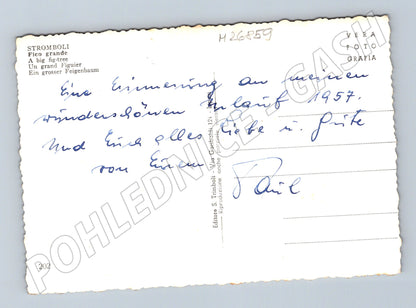 M26859
STROMBOLI
Fico grande
A big fig-tree
Un grand Figuier
Ein grosser Feigenbaum
VERA
FOTO
GRAFIA
Eine Erinnerung an meinen
wunderschönen Urlaub 1957.
Und Euch alles Liebe u. Gute
von Eurem
Paul
202
POHLEDNICE - GASH